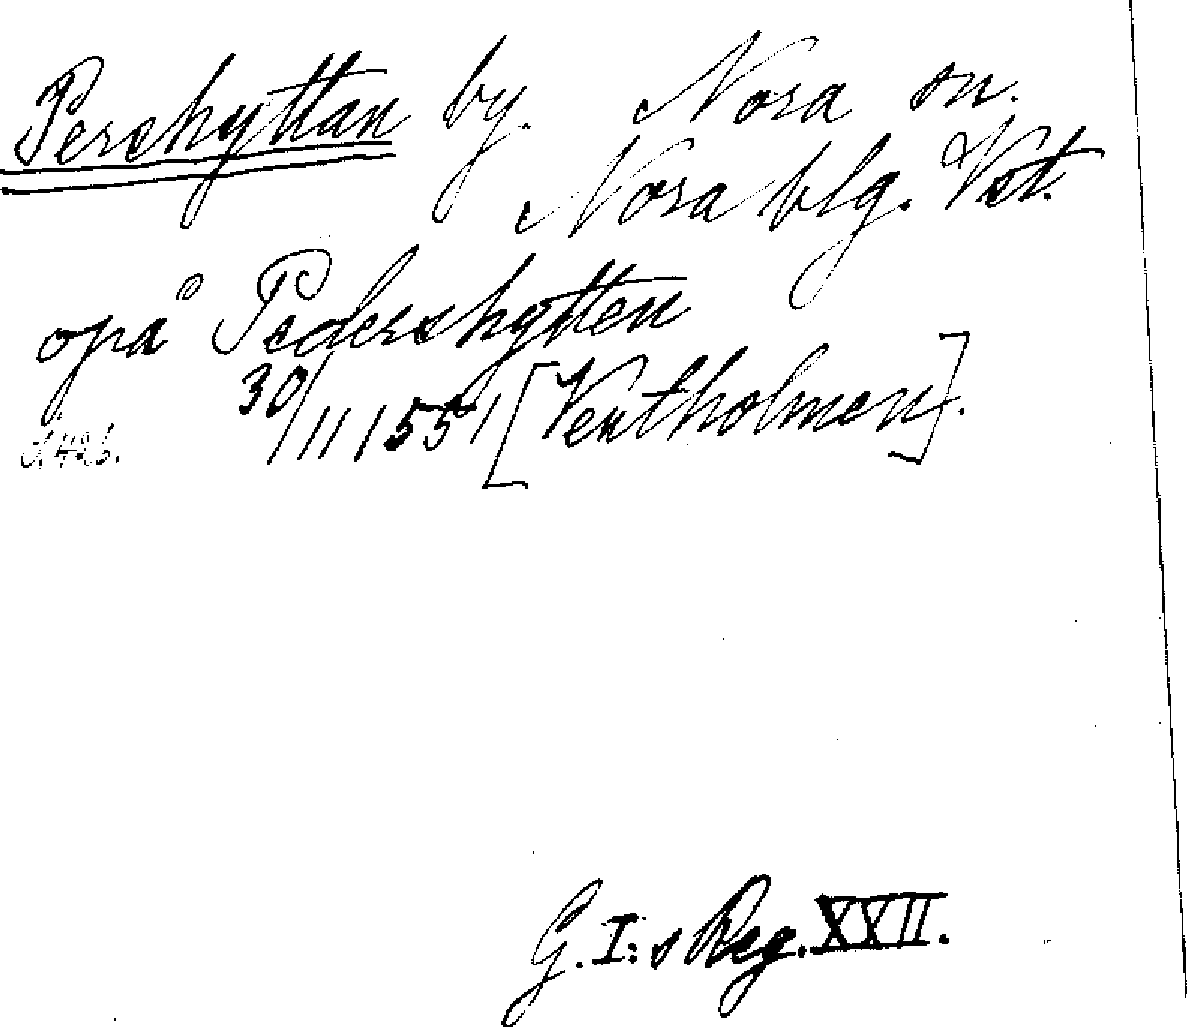 Pershyttan by. Nora sn.
Nora blg. Vst.
opå Pedershytten
30/11 1551 [Ventholmen].
S. 426.
G. I:s Reg. XXII.